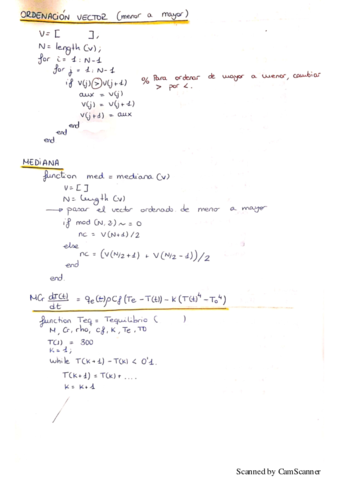 ORDENACIÓN VECTOR (menor a mayor)
V = [ ],
N = length (v);
for i = 1 : N-1
for j = 1 : N-1
if V(j) > V(j+1) % Para ordenar de mayor a menor, cambiar
aux = V(j) > por <.
V(j) = V(j+1)
V(j+1) = aux
end
end
end
MEDIANA
function med = mediana (v)
V = [ ]
N = length (v)
→ pasar el vector ordenado de menor a mayor
if mod (N, 2) ~= 0
nc = V(N+1)/2
else
nc = (V(N/2+1) + V(N/2-1))/2
end
end
MCr dT(t)/dt = qe(t)ρCf (Te - T(t)) - K (T(t)^4 - To^4)
function Teq = Tequilibrio ( )
M, Cr, rho, cf, K, Te, T0
T(1) = 300
K = 1;
while T(K+1) - T(K) < 0'1.
T(K+1) = T(K) + ....
K = K+1
Scanned by CamScanner